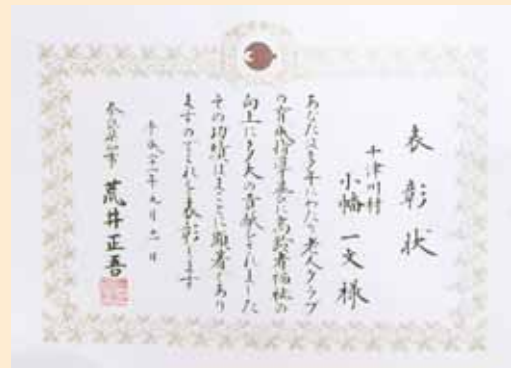 表彰状
十津川村
小幡一文様
あなたは多年にわたり老人クラブ
の育成指導並びに高齢者福祉の
向上に多大の貢献をされました
その功績はまことに顕著であり
ますのでこれを表彰します
平成二十一年九月
奈良県知事 荒井正吾